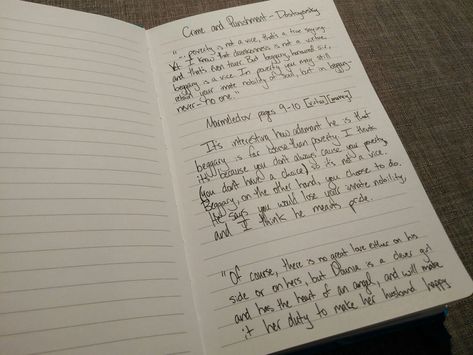 Crime and Punishment - Dostoyevsky
"... poverty is not a vice, that's a true saying.
Yet I know that drunkenness is not a virtue,
and that's even truer. But beggary, honoured sir,
beggary is a vice. In poverty you may still
retain your innate nobility of soul, but in beggary-
never-no one."
Marmeladov pages 9-10
It's interesting how adamant he is that
beggary is far worse than poverty. I think
it's because you don't always cause your poverty,
(you don't have a choice) so it's not a vice.
Beggary, on the other hand, you choose to do.
He says you would lose your innate nobility,
and I think he means pride.
"Of course, there is no great love either on his
side or on hers, but Dounia is a clever girl
and has the heart of an angel, and will make
it her duty to make her husband happy